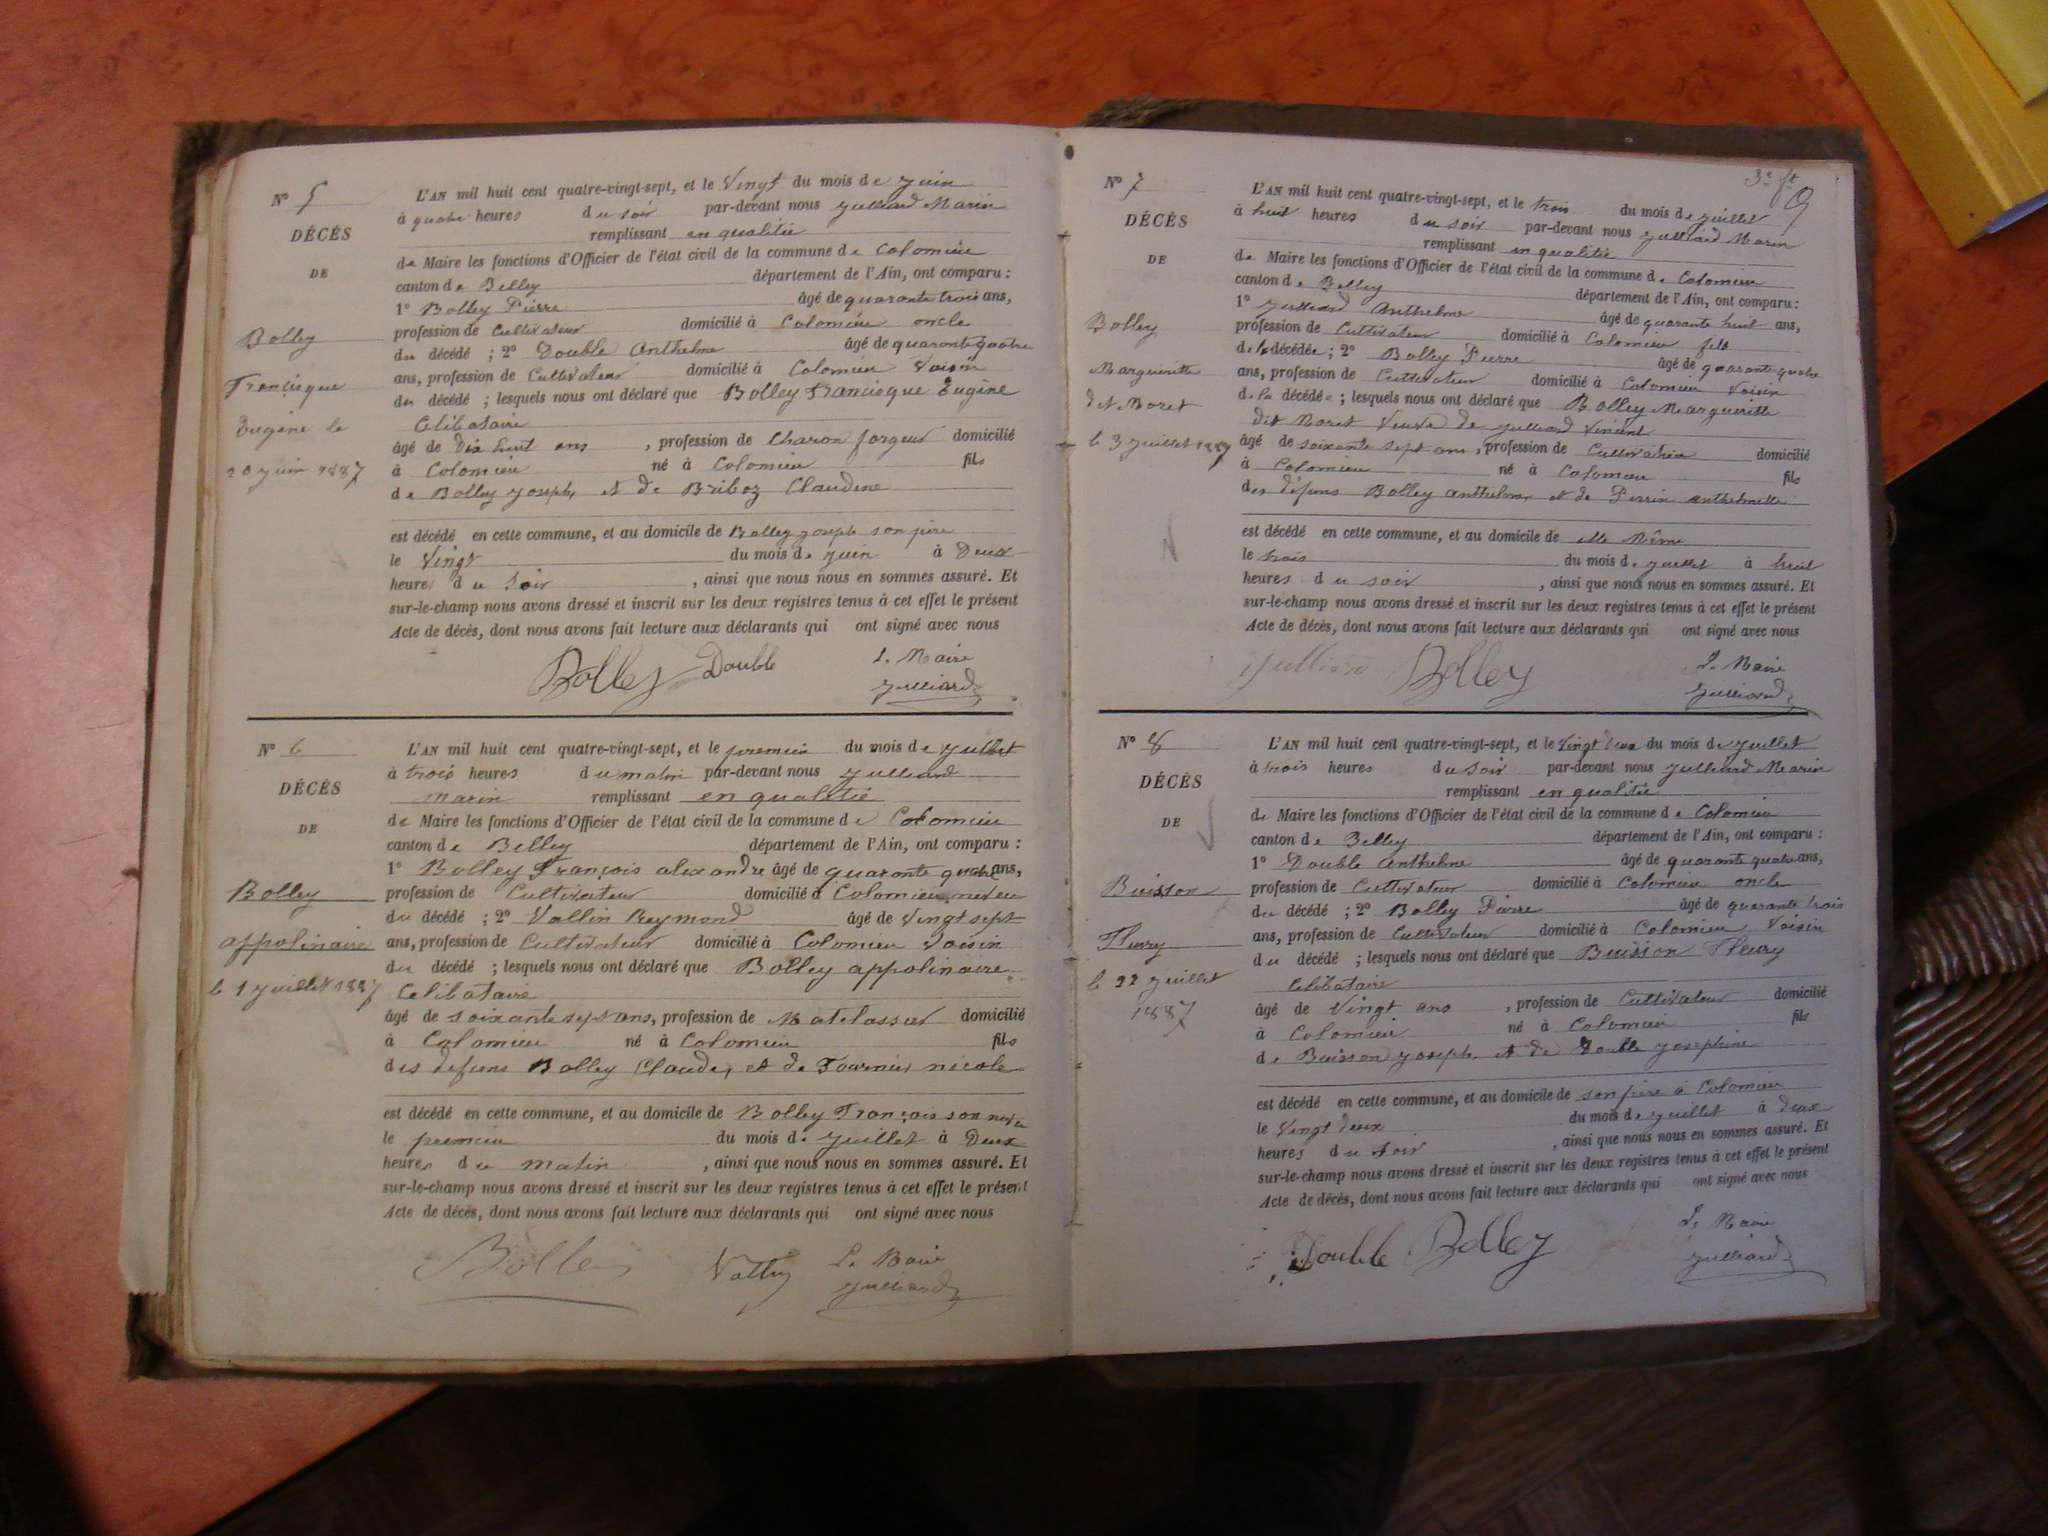 N° 5
DÉCÈS
DE
Bolley
Francisque
Eugène le
20 juin 1887
L'AN mil huit cent quatre-vingt-sept, et le Vingt du mois de juin
à quatre heures du soir par-devant nous Julliard Marin
remplissant en qualitée
de Maire les fonctions d'Officier de l'état civil de la commune de Colomieu
canton de Belley département de l'Ain, ont comparu :
1° Bolley Pierre âgé de quarante trois ans,
profession de Cultivateur domicilié à Colomieu oncle
du décédé ; 2° Double Anthelme âgé de quarante quatre
ans, profession de Cultivateur domicilié à Colomieu Voisin
du décédé ; lesquels nous ont déclaré que Bolley Francisque Eugène
Célibataire
âgé de Dix huit ans , profession de Charon forgeur domicilié
à Colomieu né à Colomieu fils
de Bolley Joseph, et de Briboz Claudine
est décédé en cette commune, et au domicile de Bolley joseph son père
le Vingt du mois de juin à Deux
heures du Soir , ainsi que nous nous en sommes assuré. Et
sur-le-champ nous avons dressé et inscrit sur les deux registres tenus à cet effet le présent
Acte de décès, dont nous avons fait lecture aux déclarants qui ont signé avec nous
Bolley Double L. Maire
Julliard
N° 6
DÉCÈS
DE
Bolley
appolinaire
le 1 juillet 1887
L'AN mil huit cent quatre-vingt-sept, et le premier du mois de juillet
à trois heures du matin par-devant nous Julliard
Marin remplissant en qualitée
de Maire les fonctions d'Officier de l'état civil de la commune de Colomieu
canton de Belley département de l'Ain, ont comparu :
1° Bolley François alexandre âgé de quarante quatre ans,
profession de Cultivateur domicilié à Colomieu neveu
du décédé ; 2° Vallin Reymond âgé de Vingt sept
ans, profession de Cultivateur domicilié à Colomieu Voisin
du décédé ; lesquels nous ont déclaré que Bolley appolinaire
Célibataire
âgé de soixante sept ans, profession de Matelasseur domicilié
à Colomieu né à Colomieu fils
des defuns Bolley Claude, et de Fournier nicole
est décédé en cette commune, et au domicile de Bolley François son neveu
le premier du mois de juillet à Deux
heures du matin , ainsi que nous nous en sommes assuré. Et
sur-le-champ nous avons dressé et inscrit sur les deux registres tenus à cet effet le présent
Acte de décès, dont nous avons fait lecture aux déclarants qui ont signé avec nous
Bolley Vallin L. Maire
Julliard
3e ft
9
N° 7
DÉCÈS
DE
Bolley
Margueritte
dit Moret
le 3 juillet 1887
L'AN mil huit cent quatre-vingt-sept, et le trois du mois de juillet
à huit heures du soir par-devant nous Julliard Marin
remplissant en qualitée
de Maire les fonctions d'Officier de l'état civil de la commune de Colomieu
canton de Belley département de l'Ain, ont comparu :
1° Julliard Anthelme âgé de quarante huit ans,
profession de Cultivateur domicilié à Colomieu fils
de la décédée ; 2° Bolley Pierre âgé de quarante quatre
ans, profession de Cultivateur domicilié à Colomieu Voisin
de la décédée ; lesquels nous ont déclaré que Bolley Margueritte
dit Moret Veuve de Julliard Vincent
âgé de soixante sept ans, profession de Cultivatrice domicilié
à Colomieu né à Colomieu fils
des défuns Bolley anthelme et de Perrin anthelmette
est décédé en cette commune, et au domicile de elle Même
le trois du mois de juillet à huit
heures du soir , ainsi que nous nous en sommes assuré. Et
sur-le-champ nous avons dressé et inscrit sur les deux registres tenus à cet effet le présent
Acte de décès, dont nous avons fait lecture aux déclarants qui ont signé avec nous
Jullian Bolley L. Maire
Julliard
N° 8
DÉCÈS
DE
Buisson
Fleury
le 22 juillet
1887
L'AN mil huit cent quatre-vingt-sept, et le Vingt deux du mois de juillet
à trois heures du soir par-devant nous Julliard Marin
remplissant en qualitée
de Maire les fonctions d'Officier de l'état civil de la commune de Colomieu
canton de Belley département de l'Ain, ont comparu :
1° Double Anthelme âgé de quarante quatre ans,
profession de Cultivateur domicilié à Colomieu oncle
du décédé ; 2° Bolley Pierre âgé de quarante trois
ans, profession de Cultivateur domicilié à Colomieu Voisin
du décédé ; lesquels nous ont déclaré que Buisson Fleury
Célibataire
âgé de Vingt ans , profession de Cultivateur domicilié
à Colomieu né à Colomieu fils
de Buisson Joseph, et de Double Joséphine
est décédé en cette commune, et au domicile de son père à Colomieu
le Vingt deux du mois de juillet à deux
heures du soir , ainsi que nous nous en sommes assuré. Et
sur-le-champ nous avons dressé et inscrit sur les deux registres tenus à cet effet le présent
Acte de décès, dont nous avons fait lecture aux déclarants qui ont signé avec nous
Double Bolley L. Maire
Julliard